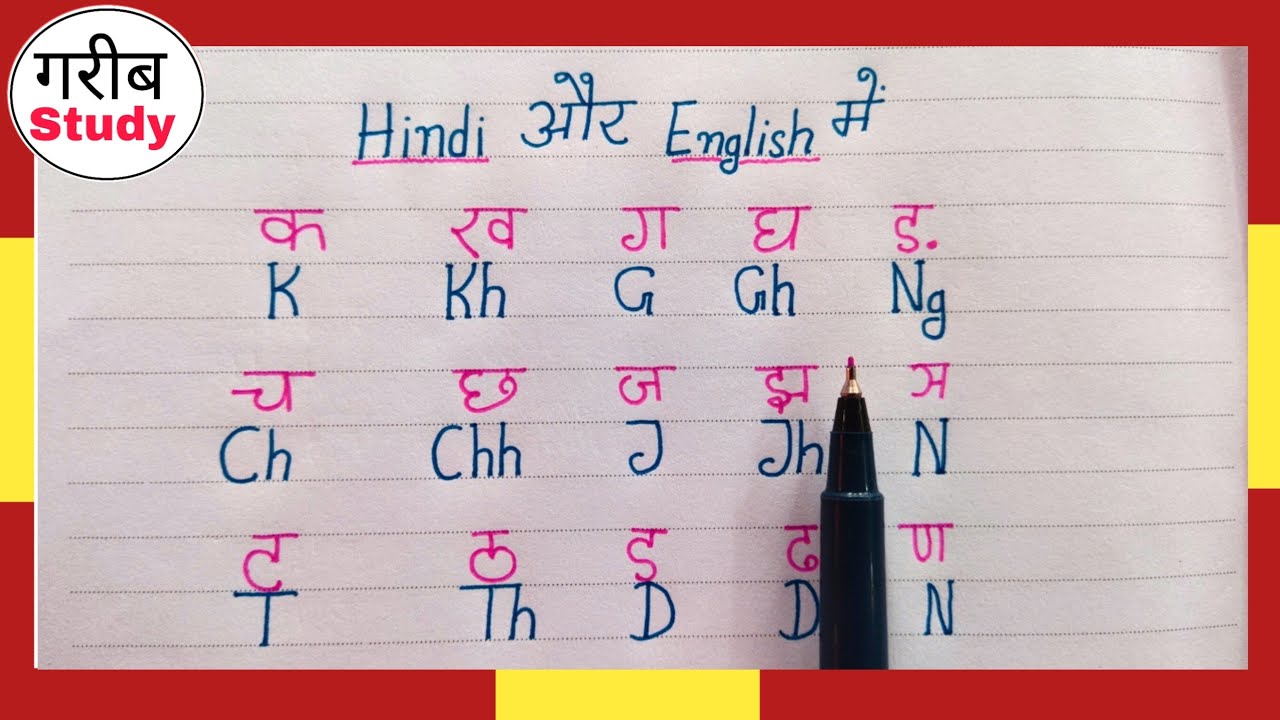 गरीब
Study
Hindi और English में
क ख ग घ ड.
K Kh G Gh Ng
च छ ज झ ञ
Ch Chh J Jh N
ट ठ ड ढ ण
T Th D D N